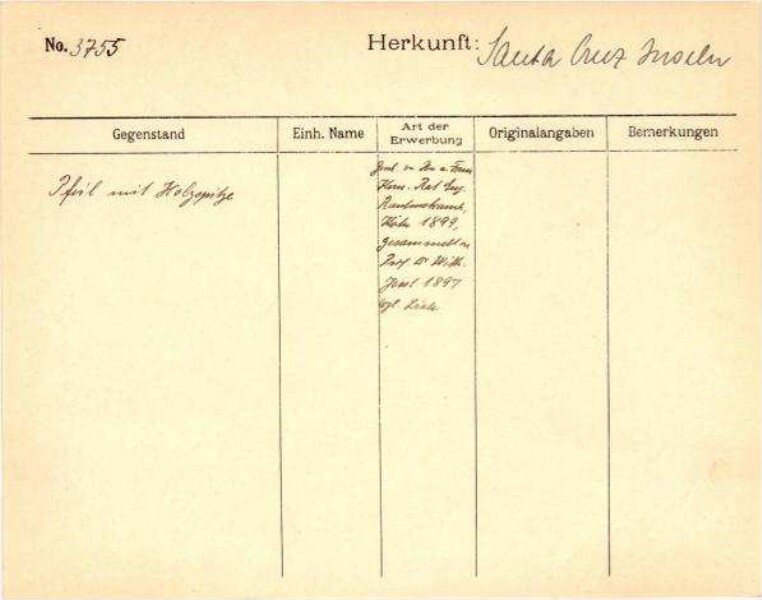 No. 3755 Herkunft: Santa Cruz Inseln
Gegenstand Einh. Name Art der Erwerbung Originalangaben Bemerkungen
Pfeil mit Holzspitze
Gesch. v. Hr. u. Frau
Kom. Rat Eug.
Rautenstrauch,
Köln 1899,
gesammelt v.
Prof. Dr Wilh.
Joest 1897
vgl. Liste